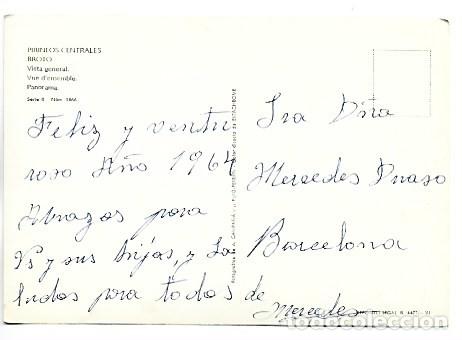 PIRINEOS CENTRALES
BROTO
Vista general.
Vue d'ensemble.
Panorama.
Serie II Núm. 1866
Feliz y ventu
roso Año 1964
Abrazos para
Vs y sus hijas, y Sa
ludos para todos de
Mercedes
Sra Dña
Mercedes
Barcelona
todocoleccion